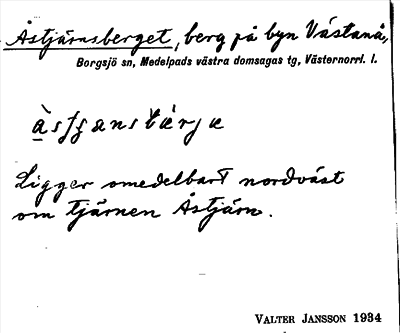 Åstjärnsberget, berg på byn Västanå,
Borgsjö sn, Medelpads västra domsagas tg, Västernorrl. l.
Ligger omedelbart nordväst
om tjärnen Åstjärn.
VALTER JANSSON 1934